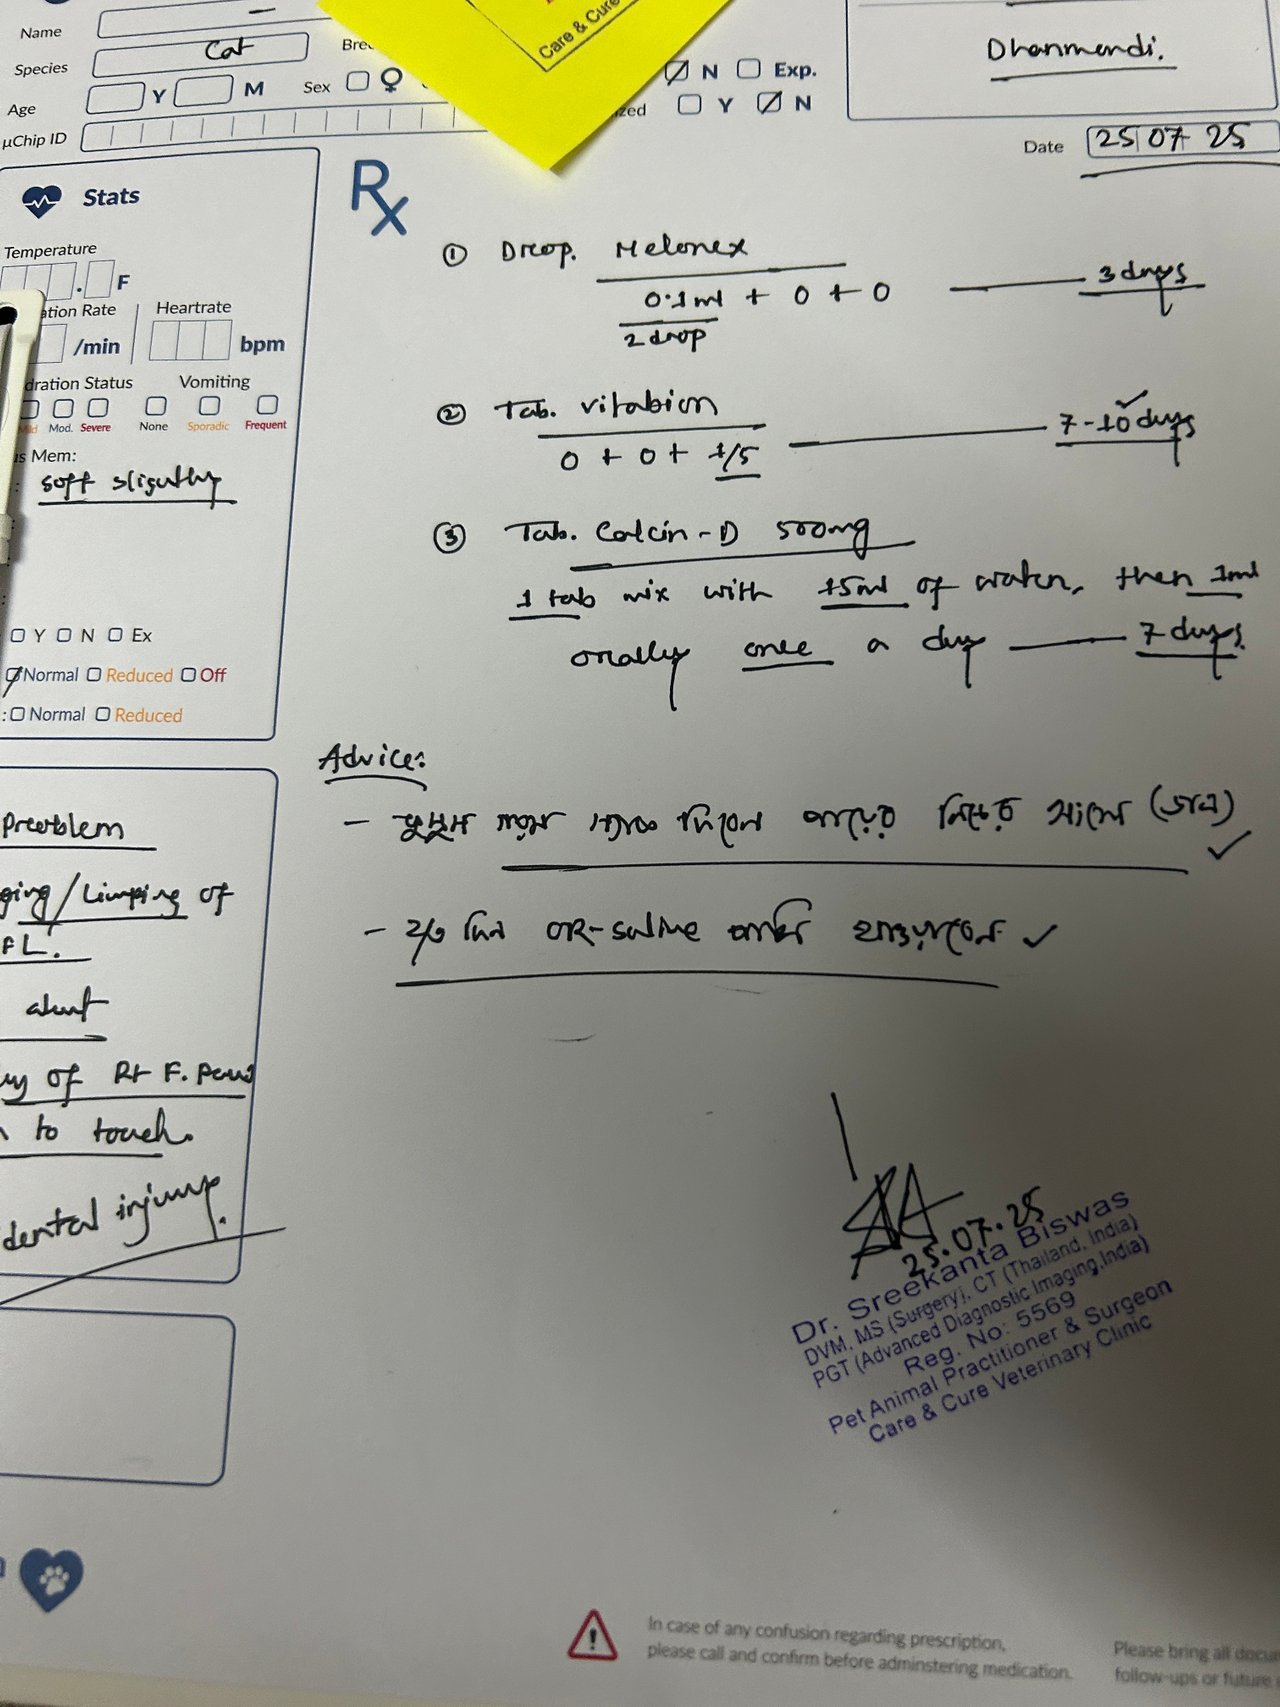 Name
Species Cat
Age Y M Sex ♀
µChip ID
Care & Cure
N Exp.
Y N
Dhanmondi.
Date 25 07 25
Stats
Temperature
. F
Heartrate
/min bpm
Vomiting
Mod. Severe None Sporadic Frequent
soft slightly
Y N Ex
Normal Reduced Off
Normal Reduced
Problem
/Limping of
FL.
alert
of Rt F.
to touch.
injury.
Rx
① Drop. Melonex
0.1ml + 0 + 0 3 days
2 drop
② Tab. Vitabion
0 + 0 + 1/5 7-10 days
③ Tab. Calcin-D 500mg
1 tab mix with 15ml of water, then 1ml
orally once a day 7 days.
Advice:
- কুসুম গরম সেক দিবেন পায়ের নিচের অংশে
- ২/৩ দিন OR-Saline পানি খাওয়াবেন
25.07.25
Dr. Sreekanta Biswas
DVM, MS (Surgery), CT (Thailand, India)
PGT (Advanced Diagnostic Imaging,India)
Reg. No: 5569
Pet Animal Practitioner & Surgeon
Care & Cure Veterinary Clinic
In case of any confusion regarding prescription,
please call and confirm before adminstering medication.
Please bring all
follow-ups or future